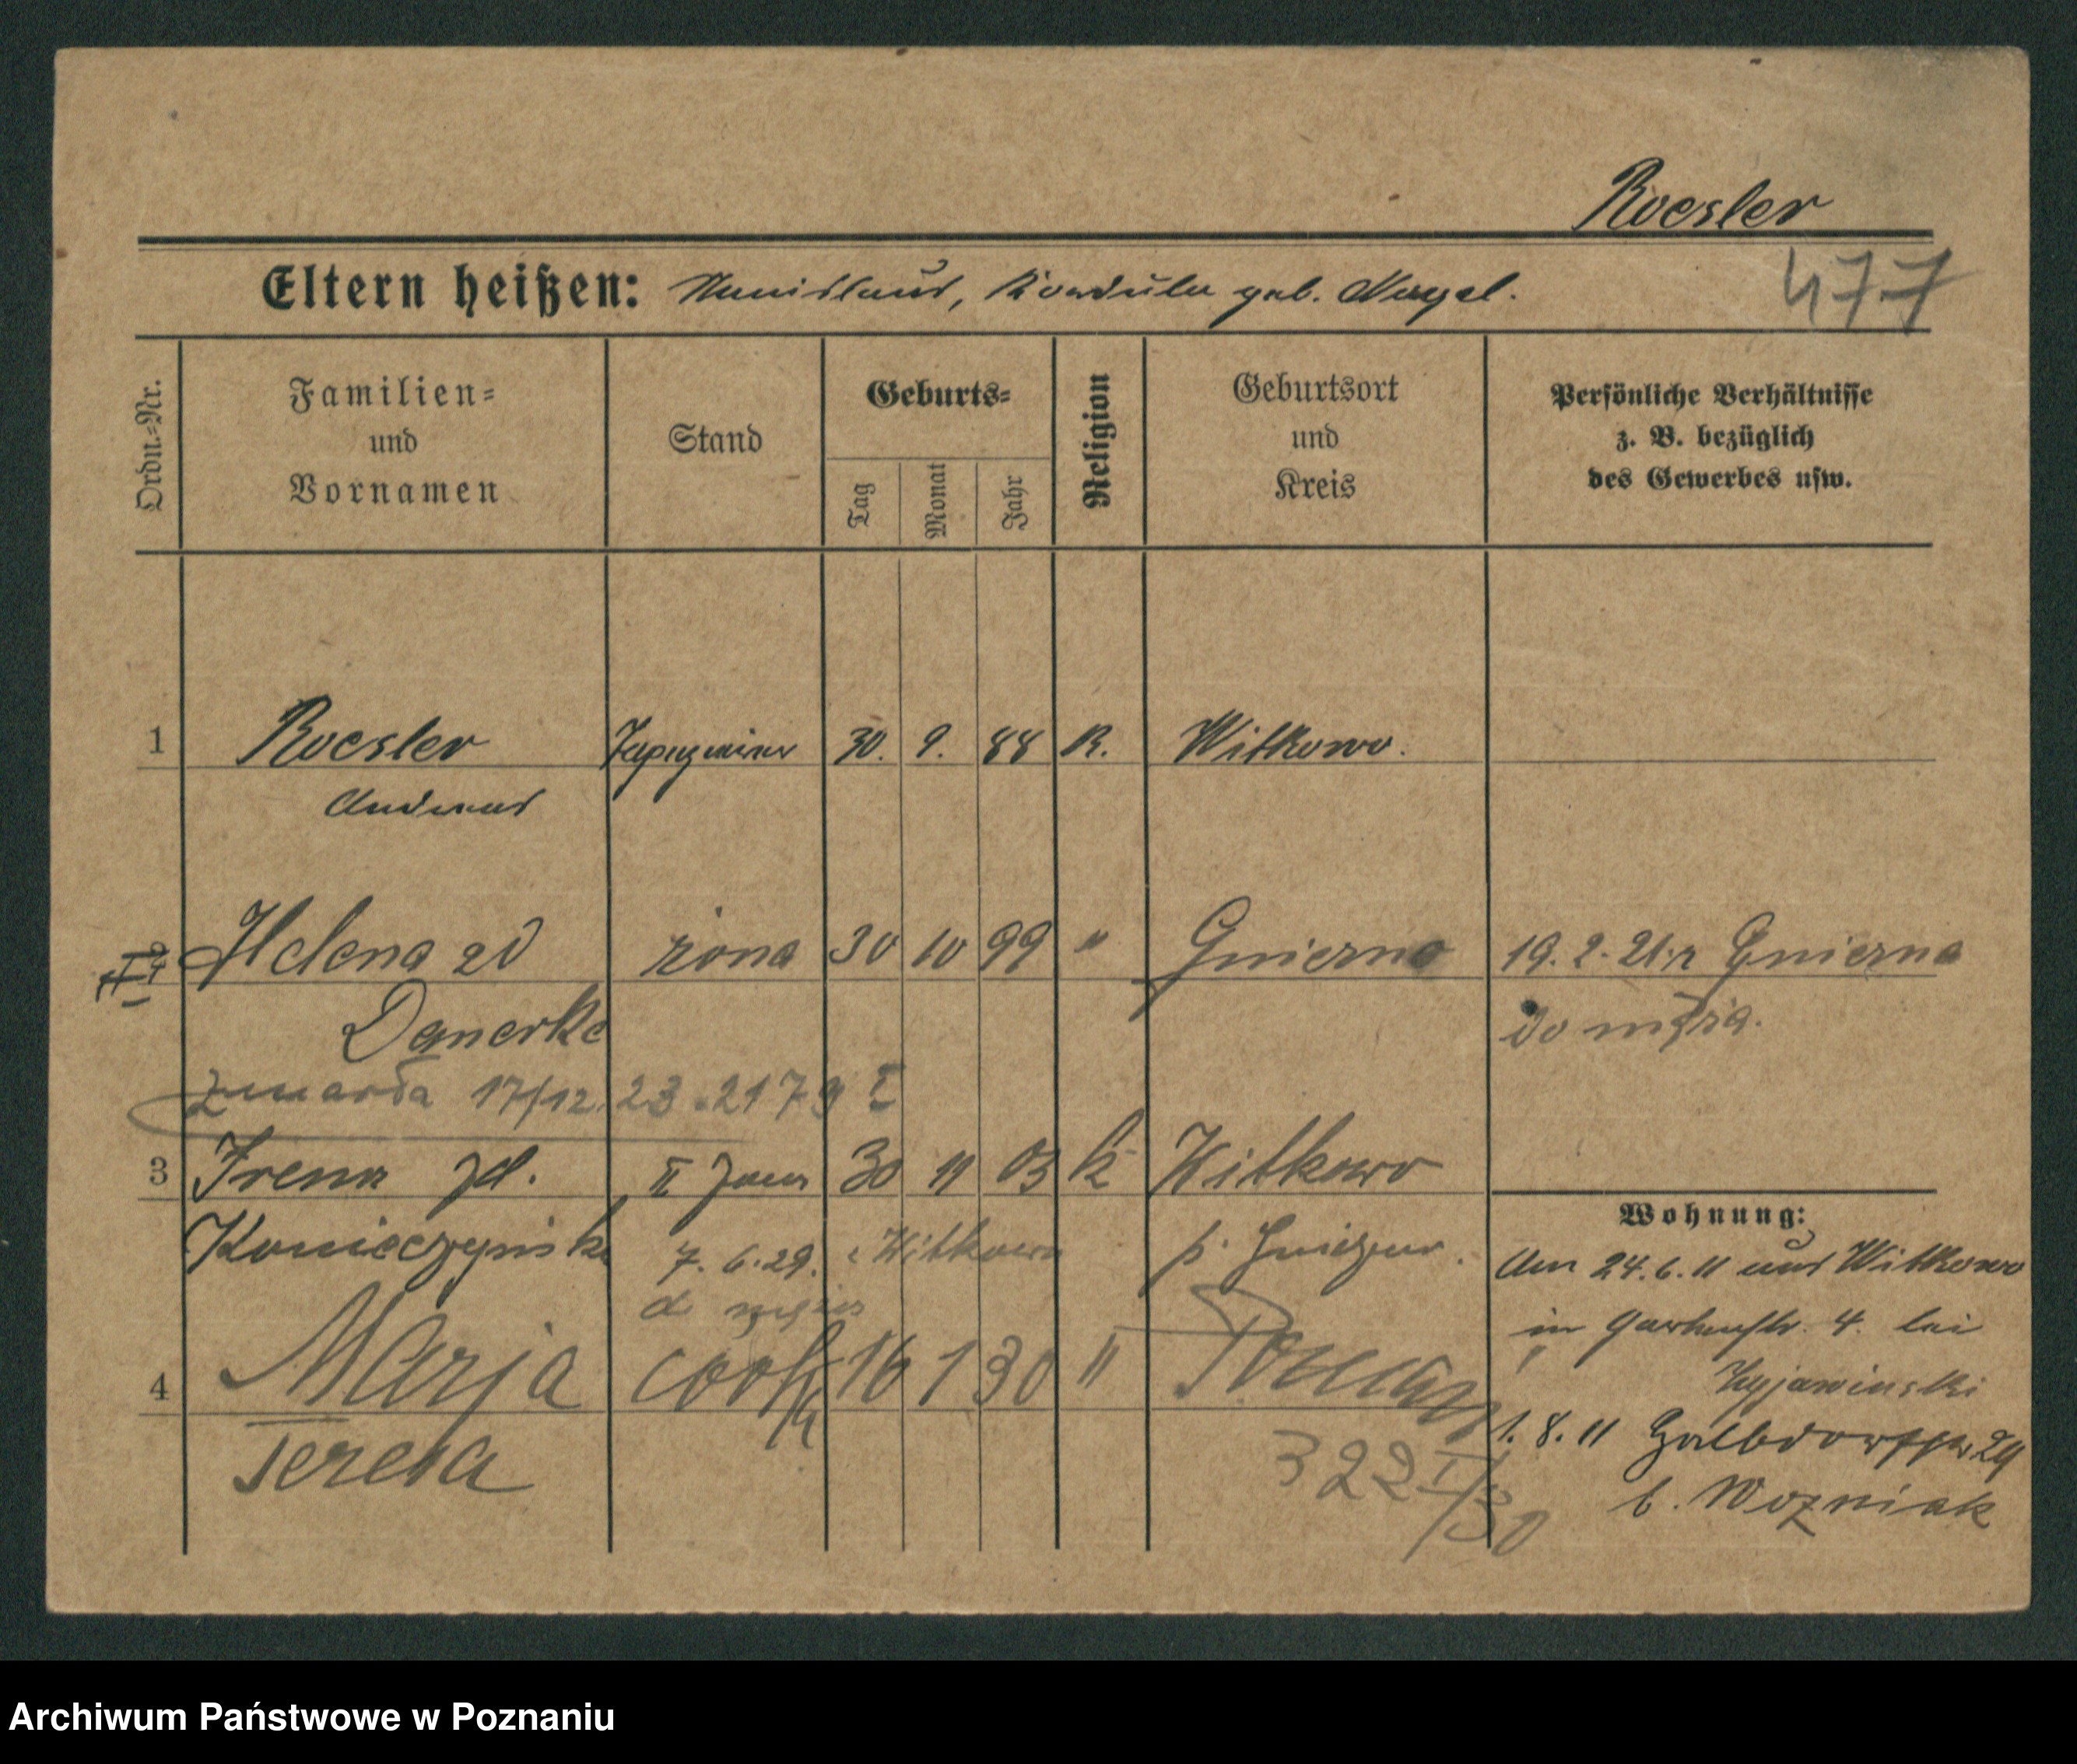 Roesler
Eltern heißen: Stanislaus, Kordula geb. Nagel.
477
Ordn.-Nr.
Familien-
und
Vornamen
Stand
Geburts-
Tag
Monat
Jahr
Religion
Geburtsort
und
Kreis
Persönliche Verhältnisse
z. B. bezüglich
des Gewerbes usw.
1 Roesler Tapezierer 30. 9. 88 K. Witkowo.
Andreas
2 Helena zd żona 30 10 99 " Gniezno 19.2.21 z Gniezna
Danerke do męża.
zmarła 17/12. 23. 2179 I
3 Irena zd. II żona 30 11 03 k Witkowo
Wohnung:
Konieczyńska 7.6.29. z Witkowa p. Gniezno.
do męża
Am 24.6.11 aus Witkowo
in Gartenstr. 4. bei
Kujawinski
4 Marja córka 16 1 30 " Poznań
1.8.11
29
Teresa
322 I/30
b. Wozniak
Archiwum Państwowe w Poznaniu